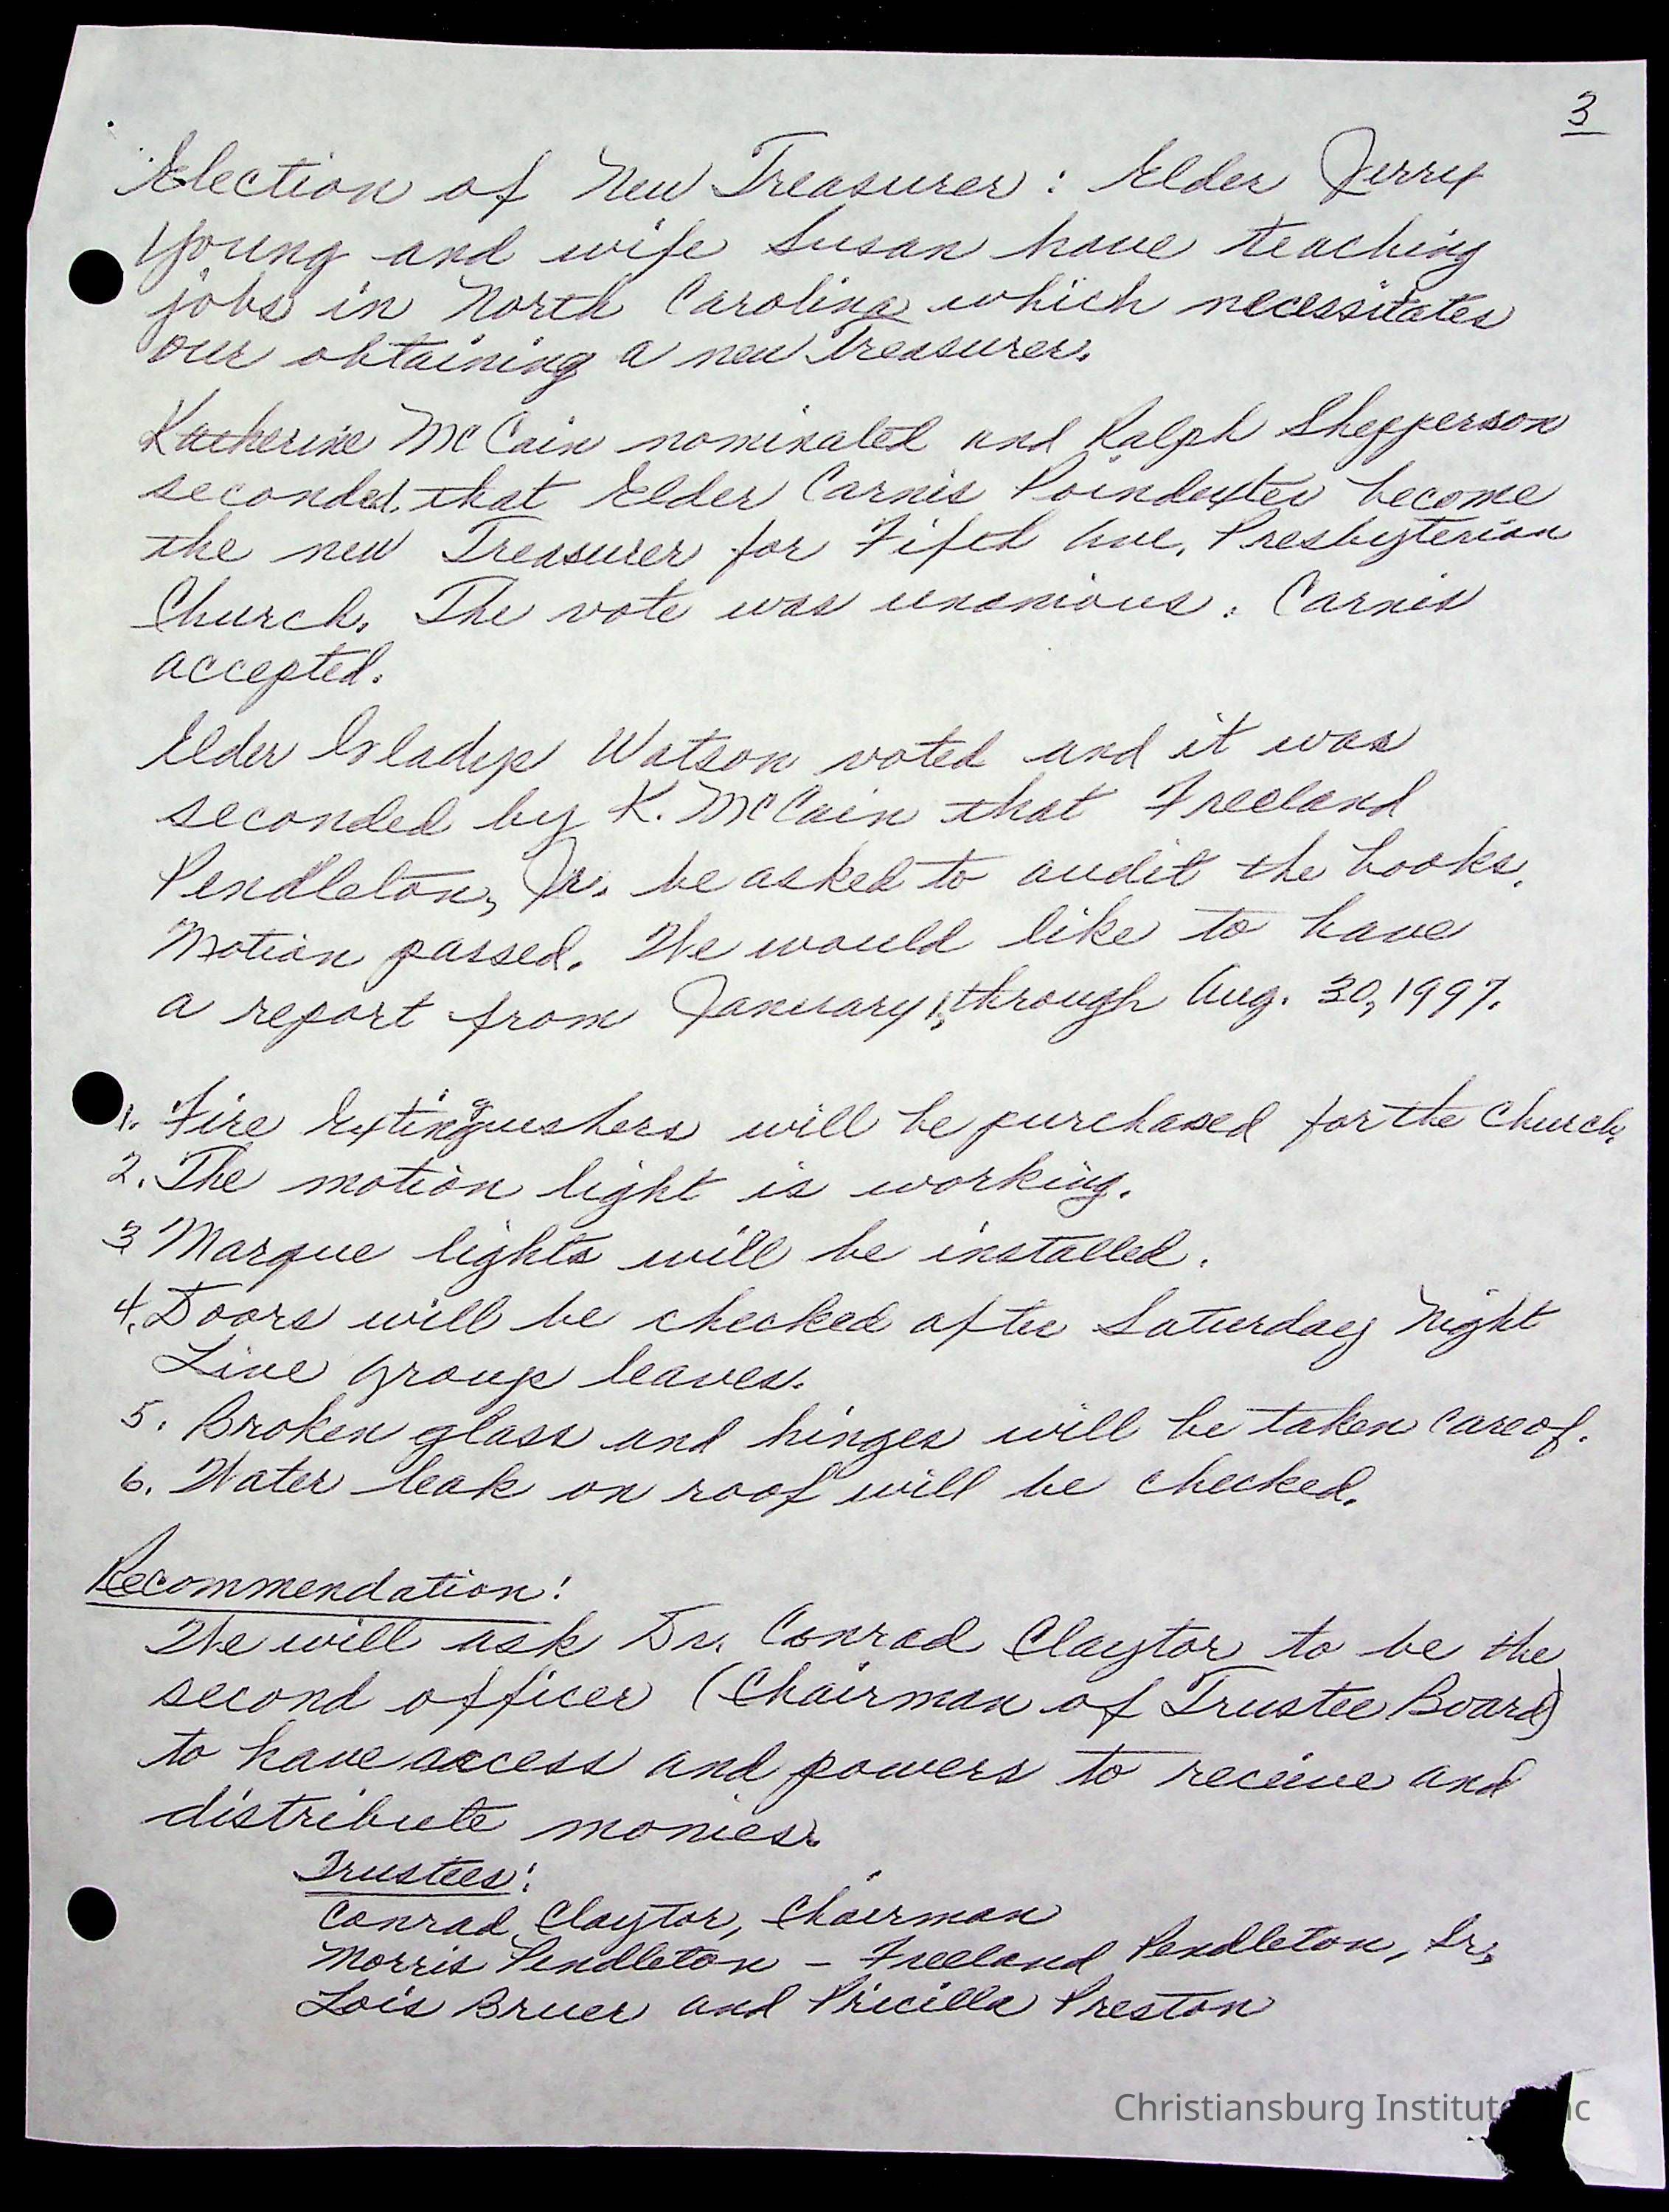 3
Election of New Treasurer: Elder Jerry
Young and wife Susan have teaching
jobs in North Carolina which necessitates
our obtaining a new Treasurer.
Katherine McCain nominated and Ralph Shepperson
seconded, that Elder Carnis Poindexter become
the new Treasurer for Fifth Ave. Presbyterian
Church. The vote was unanious. Carnis
accepted.
Elder Gladys Watson voted and it was
seconded by K. McCain that Freeland
Pendleton, Jr. be asked to audit the books.
Motion passed. We would like to have
a report from January 1, through Aug. 30, 1997.
1. Fire Extinguishers will be purchased for the Church.
2. The motion light is working.
3 Marque lights will be installed.
4. Doors will be checked after Saturday Night
Live group leaves.
5. Broken glass and hinges will be taken care of.
6. Water leak on roof will be checked.
Recommendation:
We will ask Dr. Conrad Claytor to be the
second officer (Chairman of Trustee Board)
to have access and powers to receive and
distribute monies.
Trustees:
Conrad Claytor, Chairman
Morris Pendleton - Freeland Pendleton, Sr.,
Lois Bruer and Pricilla Preston
Christiansburg Institute